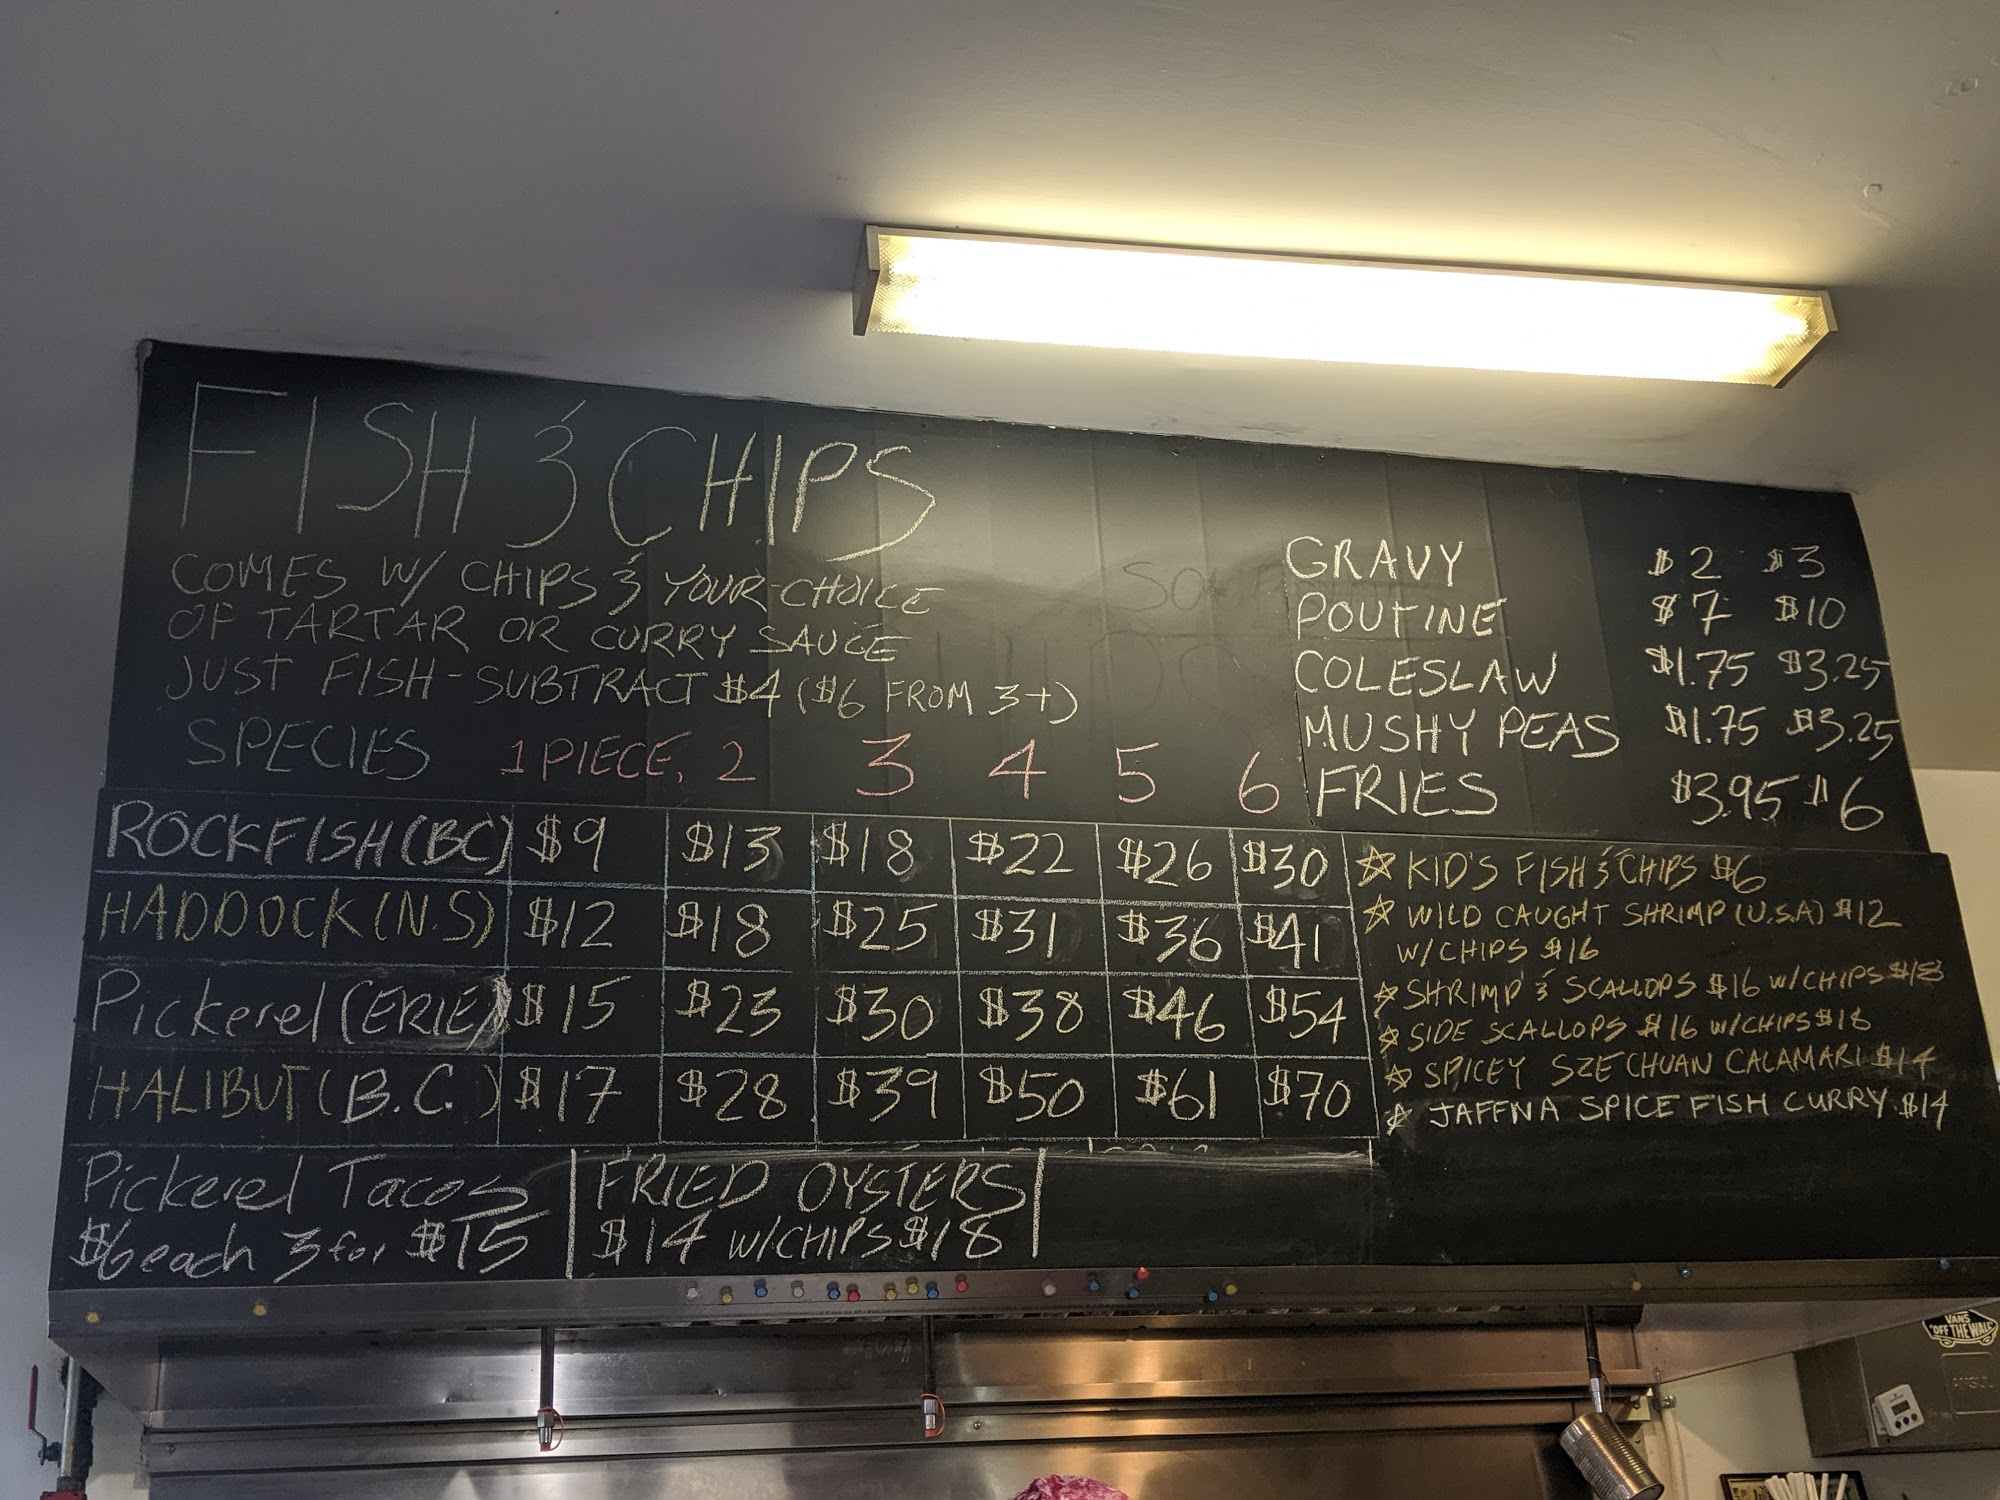 FISH & CHIPS
COMES W/ CHIPS & YOUR CHOICE
OF TARTAR OR CURRY SAUCE
JUST FISH - SUBTRACT $4 ($6 FROM 3+)
SPECIES 1 PIECE, 2 3 4 5 6
ROCKFISH (BC) $9 $13 $18 $22 $26 $30
HADDOCK (N.S) $12 $18 $25 $31 $36 $41
Pickerel (ERIE) $15 $23 $30 $38 $46 $54
HALIBUT (B.C.) $17 $28 $39 $50 $61 $70
Pickerel Tacos
$6 each 3 for $15
FRIED OYSTERS
$14 W/CHIPS $18
GRAVY $2 $3
POUTINE $7 $10
COLESLAW $1.75 $3.25
MUSHY PEAS $1.75 $3.25
FRIES $3.95 $6
☆ KID'S FISH & CHIPS $6
☆ WILD CAUGHT SHRIMP (U.S.A) $12
W/CHIPS $16
☆ SHRIMP & SCALLOPS $16 W/CHIPS $18
☆ SIDE SCALLOPS $16 W/CHIPS $18
☆ SPICEY SZECHUAN CALAMARI $14
☆ JAFFNA SPICE FISH CURRY. $14
VANS
"OFF THE WALL"
ANSUL